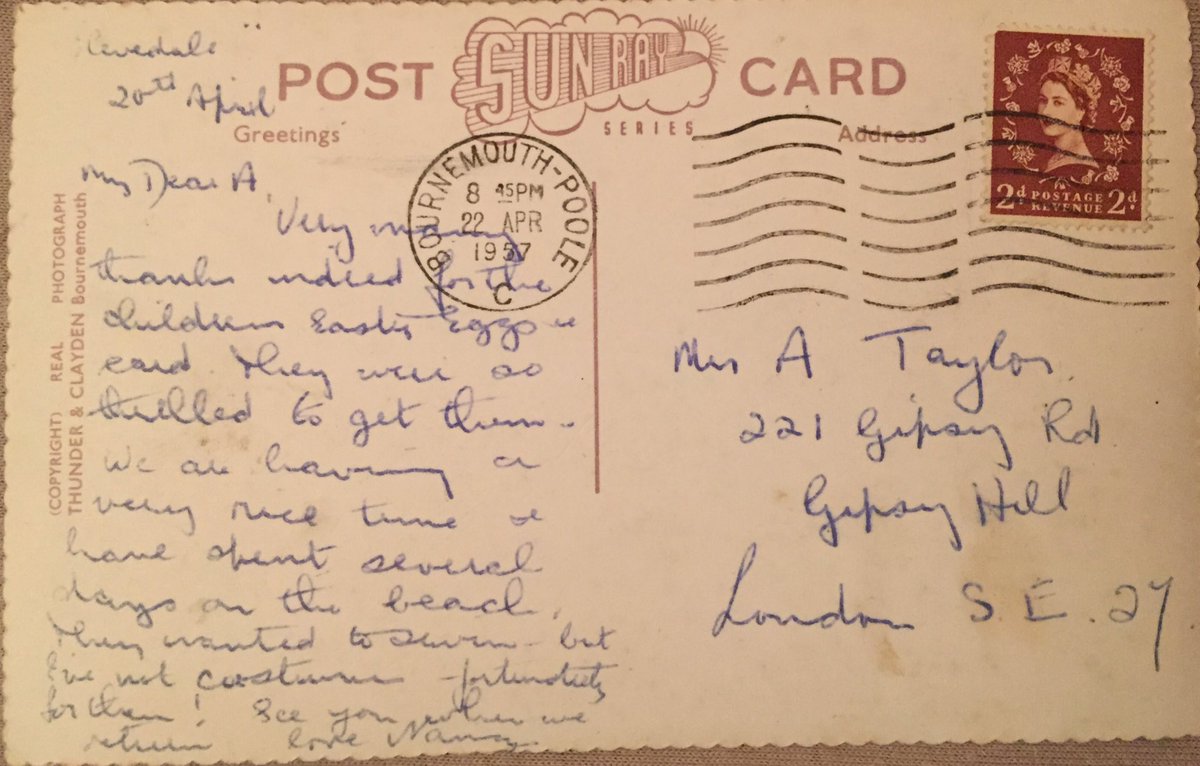 20th April
POST SUN RAY CARD
SERIES
Greetings
Address
(COPYRIGHT) REAL PHOTOGRAPH
THUNDER & CLAYDEN Bournemouth
BOURNEMOUTH-POOLE
8 45PM
22 APR
1957
C
2d POSTAGE 2d
REVENUE
My Dear A,
Very many
thanks indeed for the
childrens Easter Eggs &
card. They were so
thrilled to get them.
We are having a
very nice time &
have spent several
days on the beach,
They wanted to swim - but
I've not costumes - fortunately
for them! See you when we
return love Nancy
Mrs A Taylor
221 Gipsy Rd
Gipsy Hill
London S.E. 27